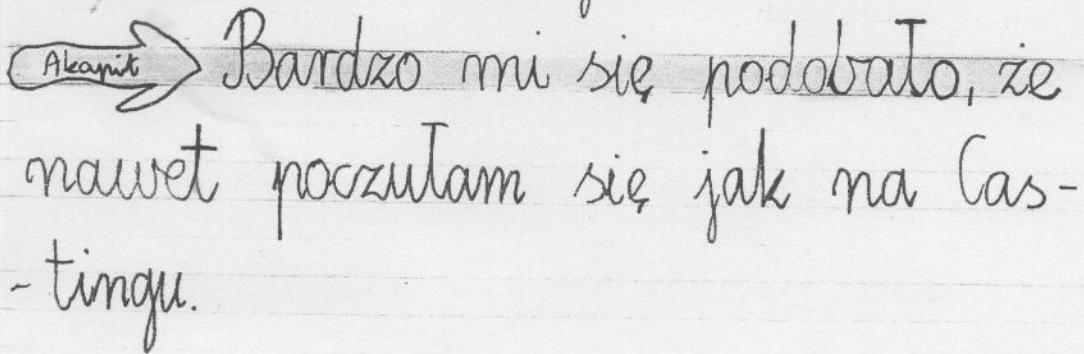 Akapit Bardzo mi się podobało, że
nawet poczułam się jak na Cas-
-tingu.